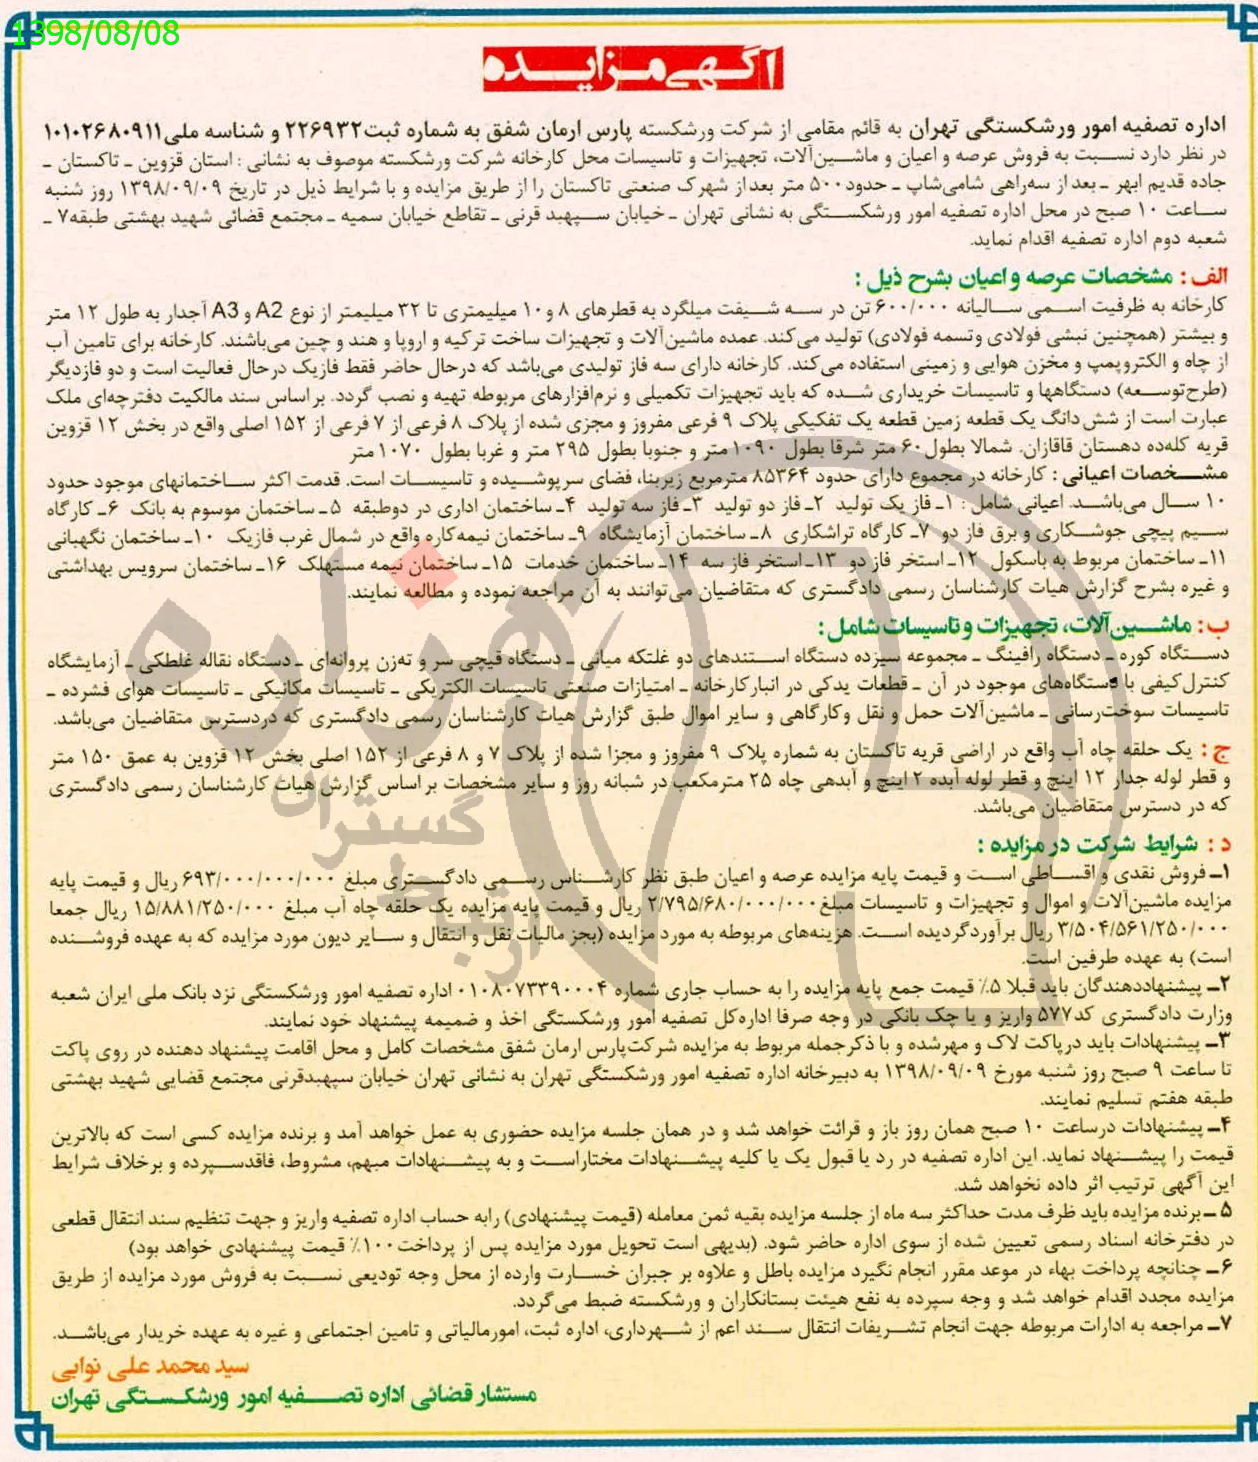 1398/08/08
آگهی مزایده
اداره تصفیه امور ورشکستگی تهران به قائم مقامی از شرکت ورشکسته پارس ارمان شفق به شماره ثبت۲۲۶۹۳۲ و شناسه ملی۱۰۱۰۲۶۸۰۹۱۱
در نظر دارد نسبت به فروش عرصه و اعیان و ماشین‌آلات، تجهیزات و تاسیسات محل کارخانه شرکت ورشکسته موصوف به نشانی : استان قزوین ـ تاکستان ـ
جاده قدیم ابهر ـ بعد از سه‌راهی شامی‌شاپ ـ حدود۵۰۰ متر بعداز شهرک صنعتی تاکستان را از طریق مزایده و با شرایط ذیل در تاریخ ۱۳۹۸/۰۹/۰۹ روز شنبه
ساعت ۱۰ صبح در محل اداره تصفیه امور ورشکستگی به نشانی تهران ـ خیابان سپهبد قرنی ـ تقاطع خیابان سمیه ـ مجتمع قضائی شهید بهشتی طبقه۷ ـ
شعبه دوم اداره تصفیه اقدام نماید.
الف : مشخصات عرصه و اعیان بشرح ذیل :
کارخانه به ظرفیت اسمی سالیانه ۶۰۰/۰۰۰ تن در سه شیفت میلگرد به قطرهای ۸ و۱۰ میلیمتری تا ۳۲ میلیمتر از نوع A2 و A3 آجدار به طول ۱۲ متر
و بیشتر (همچنین نبشی فولادی وتسمه فولادی) تولید می‌کند. عمده ماشین‌آلات و تجهیزات ساخت ترکیه و اروپا و هند و چین می‌باشند. کارخانه برای تامین آب
از چاه و الکتروپمپ و مخزن هوایی و زمینی استفاده می‌کند. کارخانه دارای سه فاز تولیدی می‌باشد که درحال حاضر فقط فازیک درحال فعالیت است و دو فازدیگر
(طرح‌توسعه) دستگاهها و تاسیسات خریداری شده که باید تجهیزات تکمیلی و نرم‌افزارهای مربوطه تهیه و نصب گردد. بر اساس سند مالکیت دفترچه‌ای ملک
عبارت است از شش دانگ یک قطعه زمین قطعه یک تفکیکی پلاک ۹ فرعی مفروز و مجزی شده از پلاک ۸ فرعی از ۷ فرعی از ۱۵۲ اصلی واقع در بخش ۱۲ قزوین
قریه کله‌ده دهستان قاقازان. شمالا بطول۶۰ متر شرقا بطول ۱۰۹۰ متر و جنوبا بطول ۲۹۵ متر و غربا بطول ۱۰۷۰ متر
مشخصات اعیانی : کارخانه در مجموع دارای حدود ۸۵۳۶۴ مترمربع زیربنا، فضای سرپوشیده و تاسیسات است. قدمت اکثر ساختمانهای موجود حدود
۱۰ سال می‌باشد. اعیانی شامل : ۱ـ فاز یک تولید ۲ـ فاز دو تولید ۳ـ فاز سه تولید ۴ـ ساختمان اداری در دوطبقه ۵ـ ساختمان موسوم به بانک ۶ـ کارگاه
سیم پیچی جوشکاری و برق فاز دو ۷ـ کارگاه تراشکاری ۸ـ ساختمان آزمایشگاه ۹ـ ساختمان نیمه‌کاره واقع در شمال غرب فازیک ۱۰ـ ساختمان نگهبانی
۱۱ـ ساختمان مربوط به باسکول ۱۲ـ استخر فاز دو ۱۳ـ استخر فاز سه ۱۴ـ ساختمان خدمات ۱۵ـ ساختمان نیمه مستهلک ۱۶ـ ساختمان سرویس بهداشتی
و غیره بشرح گزارش هیات کارشناسان رسمی دادگستری که متقاضیان می‌توانند به آن مراجعه نموده و مطالعه نمایند.
ب : ماشین‌آلات، تجهیزات و تاسیسات شامل :
دستگاه کوره ـ دستگاه رافینگ ـ مجموعه سیزده دستگاه استندهای دو غلتکه میانی ـ دستگاه قیچی سر و ته‌زن پروانه‌ای ـ دستگاه نقاله غلطکی ـ آزمایشگاه
کنترل‌کیفی با دستگاه‌های موجود در آن ـ قطعات یدکی در انبارکارخانه ـ امتیازات صنعتی تاسیسات الکتریکی ـ تاسیسات مکانیکی ـ تاسیسات هوای فشرده ـ
تاسیسات سوخت‌رسانی ـ ماشین‌آلات حمل و نقل وکارگاهی و سایر اموال طبق گزارش هیات کارشناسان رسمی دادگستری که دردسترس متقاضیان می‌باشد.
ج : یک حلقه چاه آب واقع در اراضی قریه تاکستان به شماره پلاک ۹ مفروز و مجزا شده از پلاک ۷ و ۸ فرعی از ۱۵۲ اصلی بخش ۱۲ قزوین به عمق ۱۵۰ متر
و قطر لوله جدار ۱۲ اینچ و قطر لوله آبده ۲ اینچ و آبدهی چاه ۲۵ مترمکعب در شبانه روز و سایر مشخصات بر اساس گزارش هیات کارشناسان رسمی دادگستری
که در دسترس متقاضیان می‌باشد.
د : شرایط شرکت در مزایده :
۱ـ فروش نقدی و اقساطی است و قیمت پایه مزایده عرصه و اعیان طبق نظر کارشناس رسمی دادگستری مبلغ ۶۹۳/۰۰۰/۰۰۰/۰۰۰ ریال و قیمت پایه
مزایده ماشین‌آلات و اموال و تجهیزات و تاسیسات مبلغ۲/۷۹۵/۶۸۰/۰۰۰/۰۰۰ ریال و قیمت پایه مزایده یک حلقه چاه آب مبلغ ۱۵/۸۸۱/۲۵۰/۰۰۰ ریال جمعا
۳/۵۰۴/۵۶۱/۲۵۰/۰۰۰ ریال برآوردگردیده است. هزینه‌های مربوطه به مورد مزایده (بجز مالیات نقل و انتقال و سایر دیون مورد مزایده که به عهده فروشنده
است) به عهده طرفین است.
۲ـ پیشنهاددهندگان باید قبلا ۵٪ قیمت جمع پایه مزایده را به حساب جاری شماره ۰۱۰۸۰۷۳۳۹۰۰۰۴ اداره تصفیه امور ورشکستگی نزد بانک ملی ایران شعبه
وزارت دادگستری کد۵۷۷ واریز و یا چک بانکی در وجه صرفا اداره‌کل تصفیه امور ورشکستگی اخذ و ضمیمه پیشنهاد خود نمایند.
۳ـ پیشنهادات باید درپاکت لاک و مهرشده و با ذکرجمله مربوط به مزایده شرکت‌پارس ارمان شفق مشخصات کامل و محل اقامت پیشنهاد دهنده در روی پاکت
تا ساعت ۹ صبح روز شنبه مورخ ۱۳۹۸/۰۹/۰۹ به دبیرخانه اداره تصفیه امور ورشکستگی تهران به نشانی تهران خیابان سپهبدقرنی مجتمع قضایی شهید بهشتی
طبقه هفتم تسلیم نمایند.
۴ـ پیشنهادات درساعت ۱۰ صبح همان روز باز و قرائت خواهد شد و در همان جلسه مزایده حضوری به عمل خواهد آمد و برنده مزایده کسی است که بالاترین
قیمت را پیشنهاد نماید. این اداره تصفیه در رد یا قبول یک یا کلیه پیشنهادات مختاراست و به پیشنهادات مبهم، مشروط، فاقدسپرده و برخلاف شرایط
این آگهی ترتیب اثر داده نخواهد شد.
۵ ـ برنده مزایده باید ظرف مدت حداکثر سه ماه از جلسه مزایده بقیه ثمن معامله (قیمت پیشنهادی) رابه حساب اداره تصفیه واریز و جهت تنظیم سند انتقال قطعی
در دفترخانه اسناد رسمی تعیین شده از سوی اداره حاضر شود. (بدیهی است تحویل مورد مزایده پس از پرداخت۱۰۰٪ قیمت پیشنهادی خواهد بود)
۶ـ چنانچه پرداخت بهاء در موعد مقرر انجام نگیرد مزایده باطل و علاوه بر جبران خسارت وارده از محل وجه تودیعی نسبت به فروش مورد مزایده از طریق
مزایده مجدد اقدام خواهد شد و وجه سپرده به نفع هیئت بستانکاران و ورشکسته ضبط می‌گردد.
۷ـ مراجعه به ادارات مربوطه جهت انجام تشریفات انتقال سند اعم از شهرداری، اداره ثبت، امورمالیاتی و تامین اجتماعی و غیره به عهده خریدار می‌باشد.
سید محمد علی نوابی
مستشار قضائی اداره تصفیه امور ورشکستگی تهران